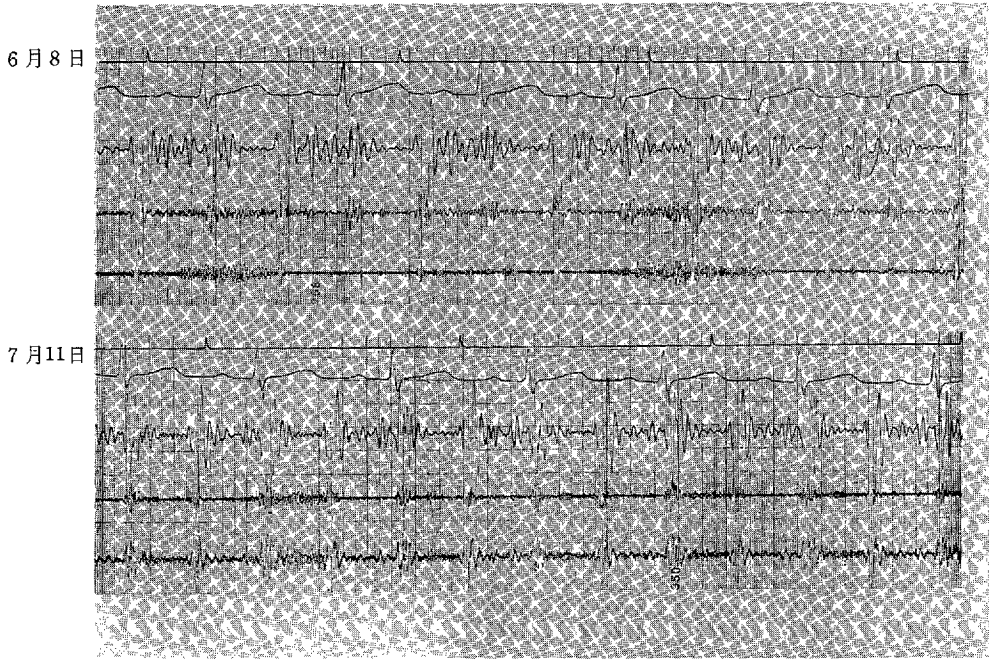 6月8日
7月11日